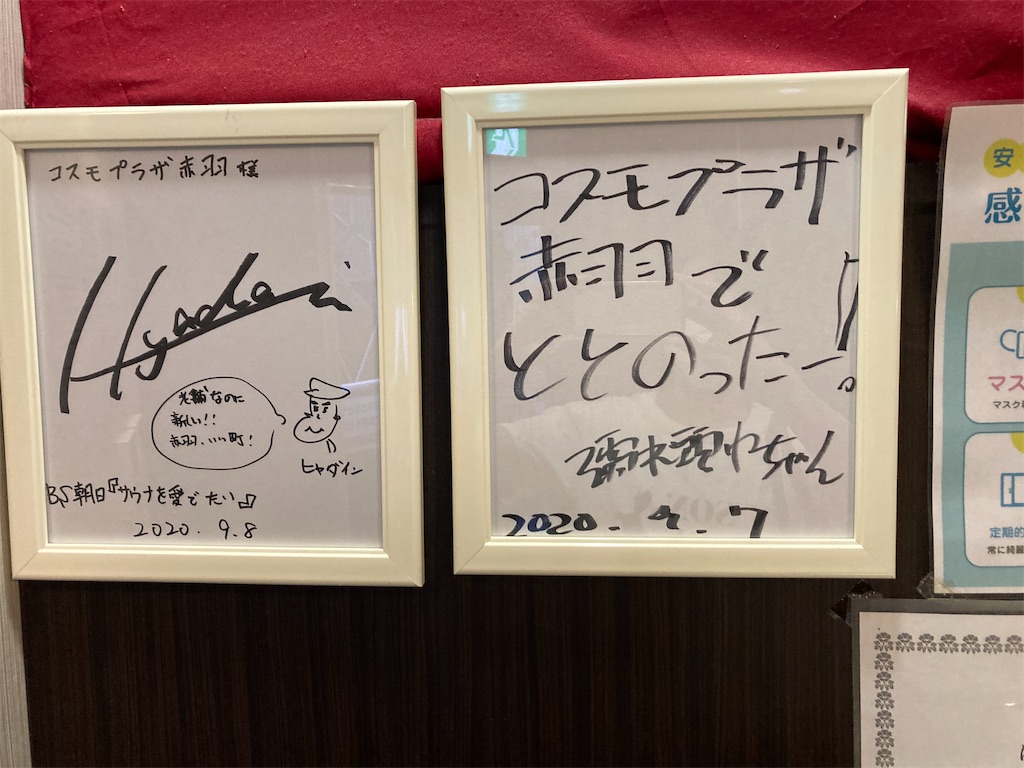 コスモプラザ赤羽様
Hyadain
老舗なのに
新しい!!
赤羽、いい町!
ヒャダイン
BS朝日『サウナを愛でたい』
2020.9.8
コスモプラザ
赤羽で
ととのったー!!
ちゃん
2020.9.7
安
感
マス
マスク
定期的
常に綺麗